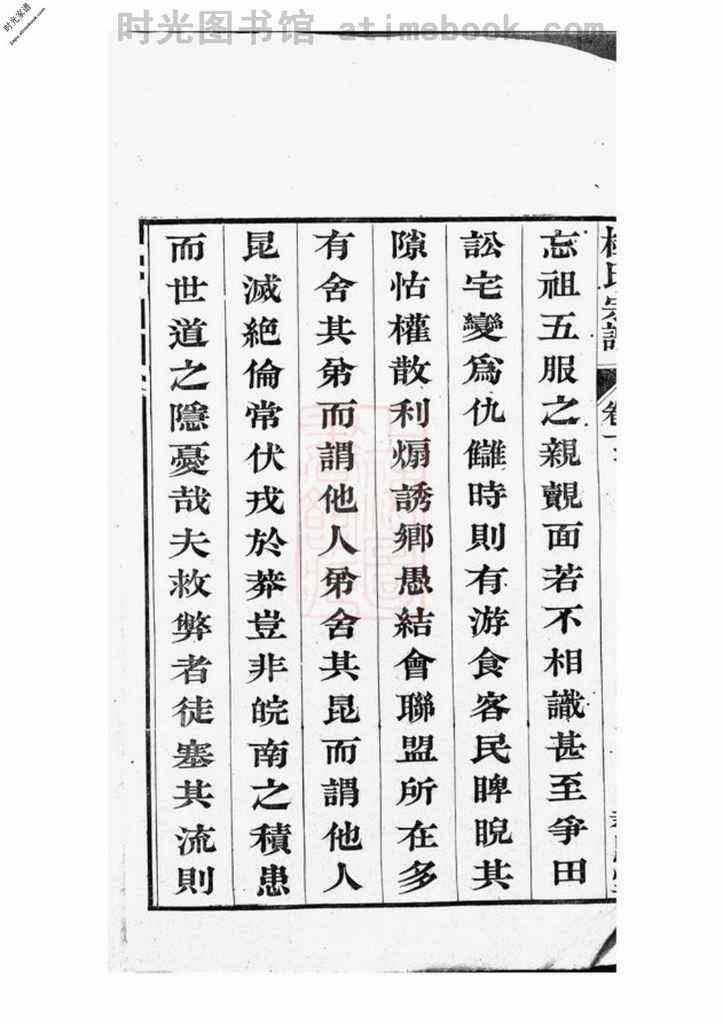 时光图书馆 atimebook.com
时光家谱
jiapu.atimebook.com
氏宗譜 卷一
忘祖五服之親覿面若不相識甚至爭田
訟宅變爲仇讎時則有游食客民睥睨其
隙怙權散利煽誘鄉愚結會聯盟所在多
有舍其弟而謂他人弟舍其昆而謂他人
昆滅絕倫常伏戎於莽豈非皖南之積患
而世道之隱憂哉夫救弊者徒塞其流則